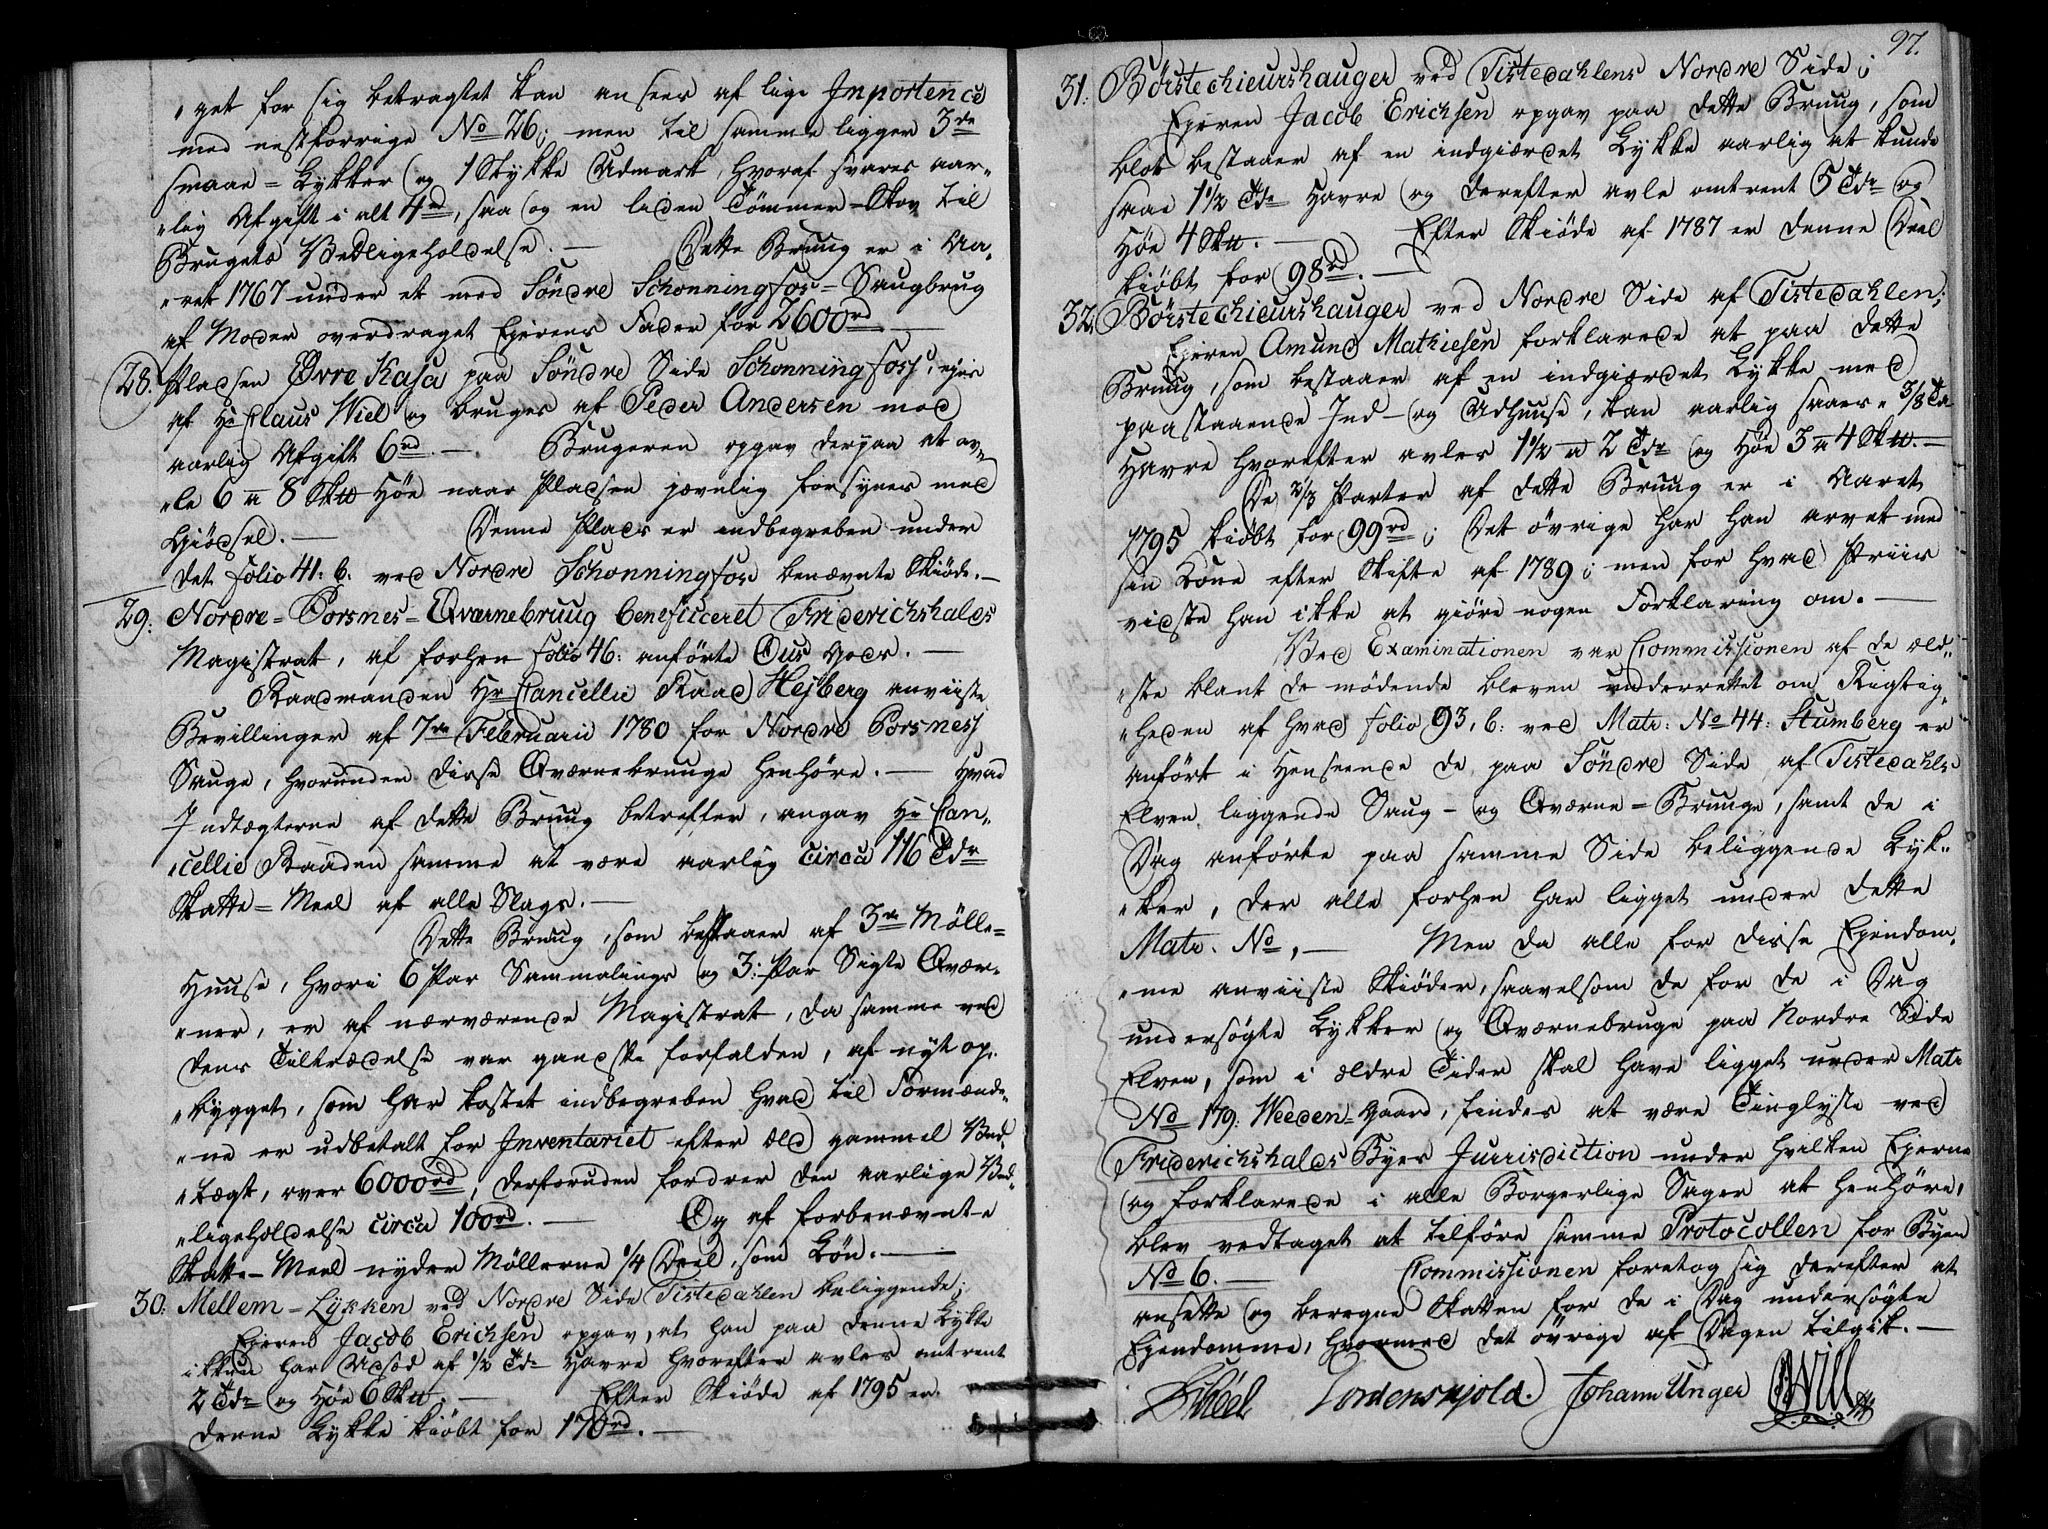 "get for sig betragtet kan ansees af lige Importence
med nestforrige No 26; men til samme ligger 3de
smaae-Løkker og 1 Stykke Udmark, hvoraf svares aar-
"lig Afgift i alt 4rd, saa og en liden Tömmer-Skov til
Brugets Vedligeholdelse. — Dette Bruug er i Aa-
"ret 1767 under et med Söndre Schonningfos-Saugbrug
af Moder overdraget Ejerens Fader for 2600rd —
28. Pladsen Øvre Kasa paa Söndre Side Schonningfoss, ejes
af Hr Claus Wiel og bruges af Peder Andersen mod
aarlig Afgift 6rd. — Brugeren opgav derpaa at av-
"le 6 a 8 Sk℔ Höe naar Pladsen jævnlig forsynes med
Giödsel. — Denne Plads er indbegreben under
det folio 41: b. ved Nordre Schonningfos benævnte Skiöde. —
29: Nordre-Porsnes-Qværnebruug beneficeret Friderichshalds
Magistrat, af forhen folio 46: anförte Ous Gods. —
Raadmanden Hr Cancellie Raad Hejberg anviiste
Bevillinger af 7de Februarii 1780 for Nordre Porsness
Sauge, hvorunder disse Qværnebruuge henhöre. — Hvad
Indtægterne af dette Bruug betreffer, angav Hr Can-
"cellie Raaden samme at være aarlig circa 116 Tdr
Skatte-Meel af alle Slags. —
Dette Bruug, som bestaaer af 3de Mölle-
Huuse, hvori 6 Par Sammalings og 3: Par Sigte Qvær-
"ner, er af nærværende Magistrat, da samme ved
dens Tiltrædelse var gandske forfalden, af nyt op-
"bygget, som har kostet indbegreben hvad til Formænde-
"ne er udbetalt for Inventariet efter old gammel Ved-
"tægt, over 6000rd, desforuden fordrer den aarlige Ved-
"ligeholdelse circa 100rd. — Og af forbenævnte
Skatte-Meel nyder Möllerne 1/4 Deel, som Lön. —
30: Mellem-Lykken ved Nordre Side Tistedahlen beliggende;
Ejeren Jacob Erichsen opgav, at han paa denne Lykke
ikkun har Udsæd af 1/2 Tde Havre hvorefter avles omtrent
2 Tdr og Höe 6 Sk℔. — Efter Skiöde af 1795 er
denne Lykke kiöbt for 170rd. —
97.
31: Børstechieurshauger ved Tistedahlens Nordre Side;
Ejeren Jacob Erichsen opgav paa dette Bruug, som
blot bestaaer af en indgiærdet Lykke aarlig at kunde
saae 1 1/2 Tde Havre og derefter avle omtrent 5 Tdr og
Höe 4 Sk℔. — Efter Skiöde af 1787 er denne Deel
kiöbt for 98rd. —
32. Børstechieurshauger ved Nordre Side af Tistedahlen;
Ejeren Amund Mathiesen forklarede at paa dette
Bruug, som bestaaer af en indgiærdet Lykke med
paastaaende Ind- og Udhuuse, kan aarlig saaes 3/8 Td
Havre hvorefter avles 1 1/2 a 2 Tdr og Höe 3 a 4 Sk℔. —
De 2/3 Parter af dette Bruug er i Aaret
1795 kiöbt for 99rd; Det övrige har han arvet med
sin Kone efter Skifte af 1789; men for hvad Priis
vidste han ikke at giöre nogen Forklaring om. —
Ved Examinationen var Commissionen af de æld-
"ste blant de mödende bleven underrettet om Rigtig-
"heden af hvad folio 93, b: ved Matr: No 44: Stumberg er
anfört i Henseende de paa Söndre Side af Tistedahls
Elven liggende Saug- og Qværne-Bruuge, samt de i
Dag anförte paa samme Side beliggende Lyk-
"ker, der alle forhen har ligget under dette
Matr. No, — Men da alle for disse Ejendom-
"me anviiste Skiöder, saavelsom de for de i Dag
undersögte Lykker og Qværnebruge paa Nordre Side
Elven, som i ældre Tider skal have ligget under Matr
No 179: Weeden-Gaard, findes at være Tinglyste ved
Friderichshalds Byes Jurisdiction under hvilken Ejerne
og forklarede i alle Borgerlige Sager at henhöre,
blev vedtaget at tilföre samme Protocollen for Byen
No 6. — Commissionen foretog sig derefter at
ansette og beregne Skatten for de i Dag undersögte
Ejendomme, hvormed det övrige af Dagen tilgik. —
Tordenskjold. Johann Unger